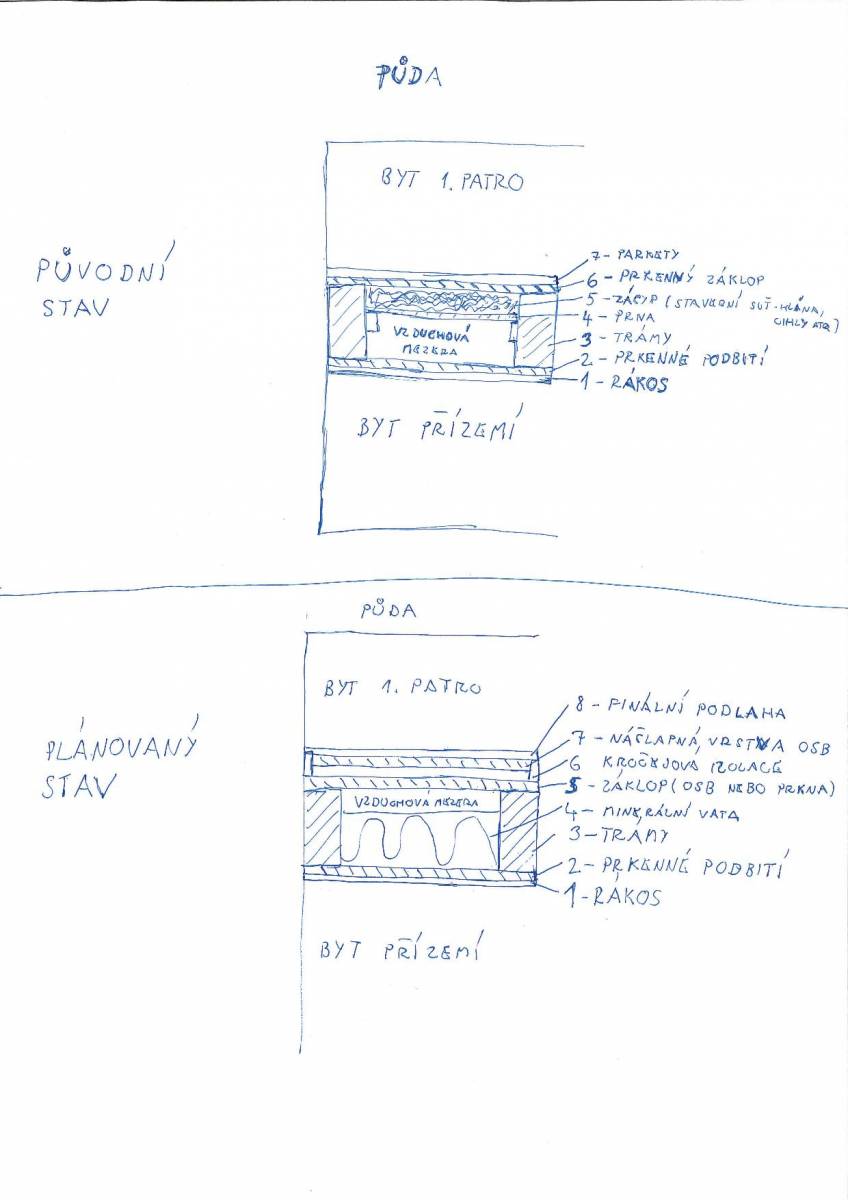 PŮDA
BYT 1. PATRO
PŮVODNÍ
STAV
7 - PARKETY
6 - PRKENNÝ ZÁKLOP
5 - ZÁSYP (STAVEBNÍ SUŤ - HLÍNA,
CIHLY ATD)
4 - PRNA
3 - TRÁMY
2 - PRKENNÉ PODBITÍ
1 - RÁKOS
VZDUCHOVÁ
MEZERA
BYT PŘÍZEMÍ
PŮDA
BYT 1. PATRO
PLÁNOVANÝ
STAV
8 - FINÁLNÍ PODLAHA
7 - NÁŠLAPNÁ VRSTVA OSB
6 KROČEJOVÁ IZOLACE
5 - ZÁKLOP (OSB NEBO PRKNA)
4 - MINERÁLNÍ VATA
3 - TRÁMY
2 - PRKENNÉ PODBITÍ
1 - RÁKOS
VZDUCHOVÁ MEZERA
BYT PŘÍZEMÍ